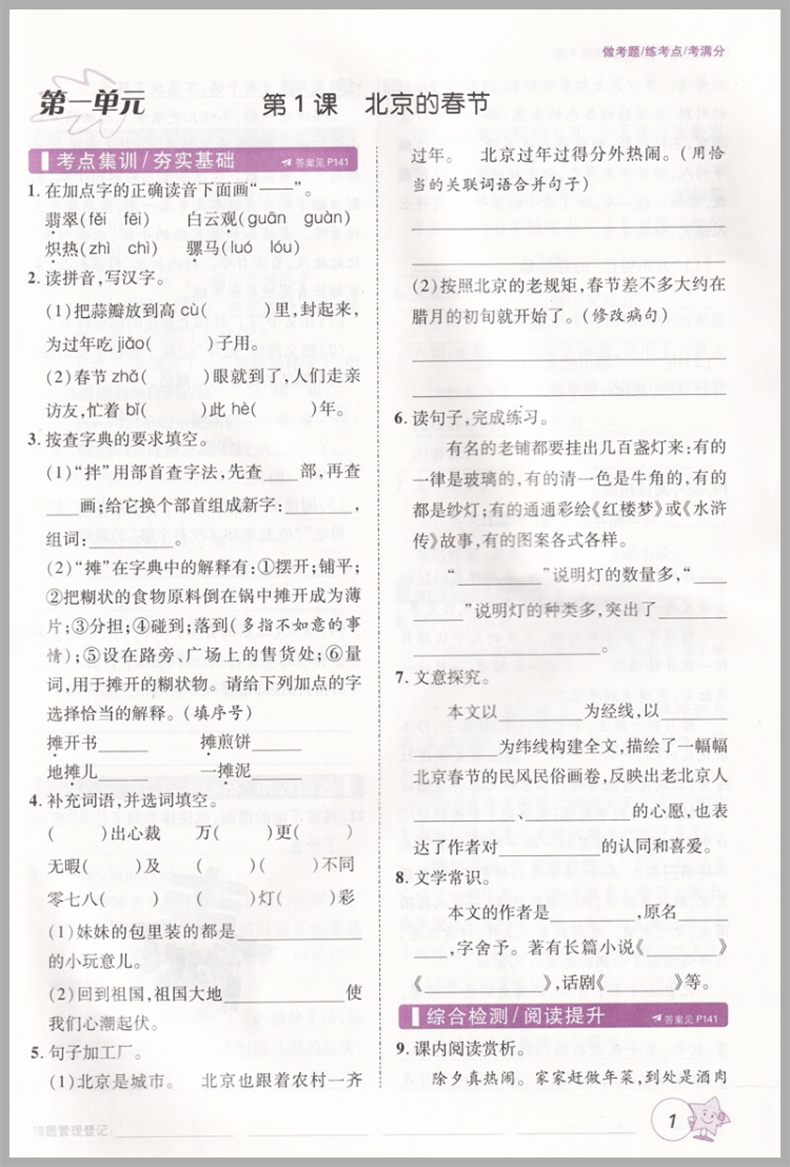 做考题/练考点/考满分
第一单元
第1课 北京的春节
考点集训/夯实基础 答案见P141
1. 在加点字的正确读音下面画“——”。
翡翠(fěi fēi) 白云观(guān guàn)
炽热(zhì chì) 骡马(luó lóu)
2. 读拼音,写汉字。
(1)把蒜瓣放到高 cù( )里,封起来,
为过年吃 jiǎo( )子用。
(2)春节 zhǎ( )眼就到了,人们走亲
访友,忙着 bǐ( )此 hè( )年。
3. 按查字典的要求填空。
(1)“拌”用部首查字法,先查____部,再查
____画;给它换个部首组成新字:______,
组词:________。
(2)“摊”在字典中的解释有:①摆开;铺平;
②把糊状的食物原料倒在锅中摊开成为薄
片;③分担;④碰到;落到(多指不如意的事
情);⑤设在路旁、广场上的售货处;⑥量
词,用于摊开的糊状物。请给下列加点的字
选择恰当的解释。(填序号)
摊开书______ 摊煎饼______
地摊儿______ 一摊泥______
4. 补充词语,并选词填空。
( )出心裁 万( )更( )
无暇( )及 ( )( )不同
零七八( ) ( )灯( )彩
(1)妹妹的包里装的都是____________
的小玩意儿。
(2)回到祖国,祖国大地____________使
我们心潮起伏。
5. 句子加工厂。
(1)北京是城市。 北京也跟着农村一齐
过年。 北京过年过得分外热闹。(用恰
当的关联词语合并句子)
(2)按照北京的老规矩,春节差不多大约在
腊月的初旬就开始了。(修改病句)
6. 读句子,完成练习。
有名的老铺都要挂出几百盏灯来;有的
一律是玻璃的,有的清一色是牛角的,有的
都是纱灯;有的通通彩绘《红楼梦》或《水浒
传》故事,有的图案各式各样。
“________”说明灯的数量多,“____
______”说明灯的种类多,突出了________
__________________。
7. 文意探究。
本文以________为经线,以________
________为纬线构建全文,描绘了一幅幅
北京春节的民风民俗画卷,反映出老北京人
________、________的心愿,也表
达了作者对________的认同和喜爱。
8. 文学常识。
本文的作者是________,原名______
____,字舍予。著有长篇小说《________》
《____________》,话剧《________》等。
综合检测/阅读提升 答案见P141
9. 课内阅读赏析。
除夕真热闹。家家赶做年菜,到处是酒肉
错题管理登记:
1